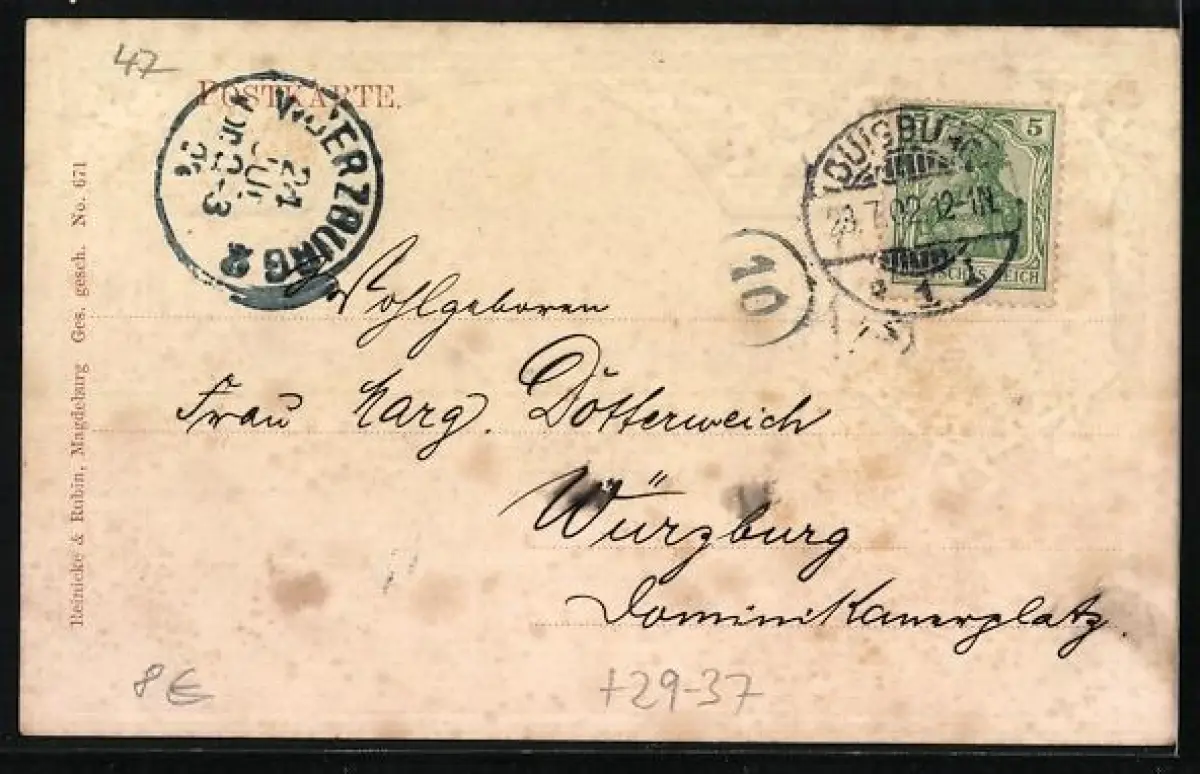 47
POSTKARTE.
WUERZBURG 2
24
JUL
2-3
DUISBURG
23.7.02.12-1N.
* 1 I
5
10
Wohlgeboren
Frau Marg. Dötterweich
Würzburg
Dominikanerplatz.
Reinicke & Rubin, Magdeburg Ges. gesch. No. 671
8€
+29-37